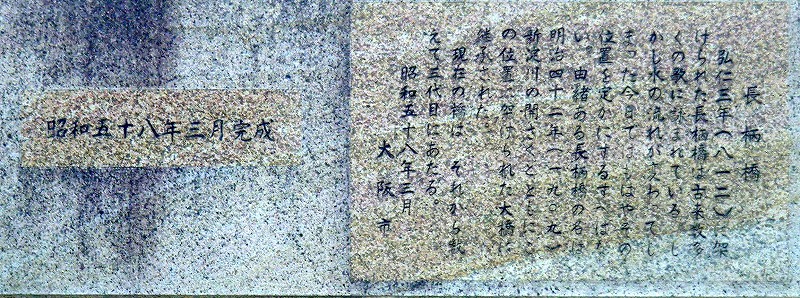 長柄橋
弘仁三年(八一二)に架
けられた長柄橋は古来数多
くの歌に詠まれている。し
かし水の流れがかわってし
まった今日ではもはやその
位置を定かにするすべはな
い。由緒ある長柄橋の名は
明治四十二年(一九〇九)
新淀川の開さくとともにこ
の位置に架けられた大橋に
継承された。
現在の橋は、それから数
えて三代目にあたる。
昭和五十八年三月
大阪市
昭和五十八年三月完成